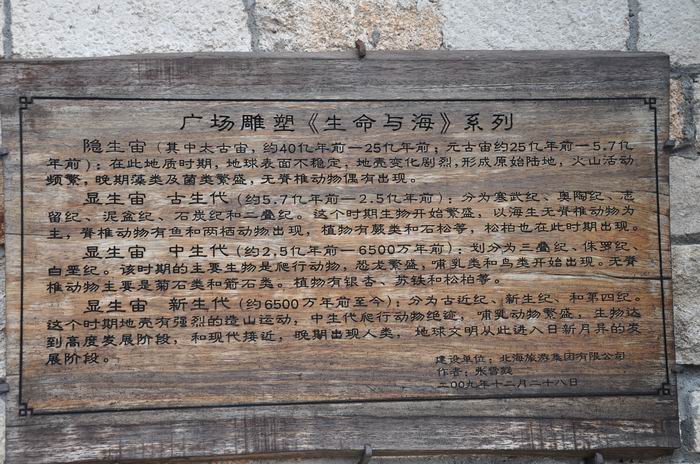 广场雕塑《生命与海》系列
隐生宙（其中太古宙，约40亿年前—25亿年前；元古宙约25亿年前—5.7亿
年前）：在此地质时期，地球表面不稳定，地壳变化剧烈，形成原始陆地，火山活动
频繁，晚期藻类及菌类繁盛，无脊椎动物偶有出现。
显生宙 古生代（约5.7亿年前—2.5亿年前）：分为寒武纪、奥陶纪、志
留纪、泥盆纪、石炭纪和二叠纪。这个时期生物开始繁盛，以海生无脊椎动物为
主，脊椎动物有鱼和两栖动物出现，植物有蕨类和石松等，松柏也在此时期出现。
显生宙 中生代（约2.5亿年前—6500万年前）；划分为三叠纪、侏罗纪、
白垩纪。该时期的主要生物是爬行动物，恐龙繁盛，哺乳类和鸟类开始出现。无脊
椎动物主要是菊石类和箭石类。植物有银杏、苏铁和松柏等。
显生宙 新生代（约6500万年前至今）；分为古近纪、新生纪、和第四纪。
这个时期地壳有强烈的造山运动，中生代爬行动物绝迹，哺乳动物繁盛，生物达
到高度发展阶段，和现代接近，晚期出现人类，地球文明从此进入日新月异的发
展阶段。
建设单位：北海旅游集团有限公司
作者：张雪
二00九年十二月二十八日